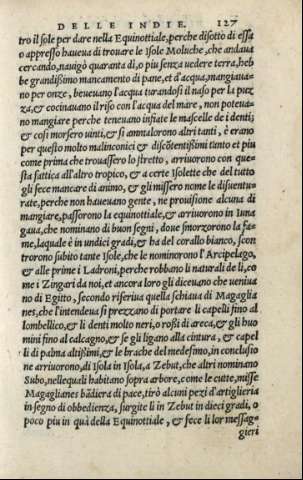 DELLE INDIE. 127
tro il sole per dare nella Equinottiale, perche disotto di essa
o appresso haueua di trouare le Isole Moluche, che andaua
cercando, nauigò quaranta dì, o piu senza uedere terra, heb
be grandißimo mancamento di pane, et d'acqua, mangiaua-
no per onze, beueuano l'acqua turandosi il naso per la puz
za, & cocinauano il riso con l'acqua del mare, non poteua-
no mangiare perche teneuano infiate le mascelle de i denti;
& cosi morsero uinti, & si ammalorono altri tanti, è erano
per questo molto malinconici & discõtentißimi tanto et piu
come prima che trouassero lo stretto, arriuorono con que-
sta fattica all'altro tropico, & a certe Isolette che del tutto
gli fece mancare di animo, & gli missero nome le disuentu-
rate, perche non haueuano gente, ne prouisione alcuna di
mangiare, passorono la equinottiale, & arriuorono in Iuna
gaua, che nominano di buon segni, doue smorzorono la fa-
me, laquale è in undici gradi, & ha del corallo bianco, scon
trorono subito tante Isole, che le nominorono l'Arcipelago,
& alle prime i Ladroni, perche robbano li naturali de lì, co
me i Zingari da noi, et ancora loro gli diceuano che ueniua
no di Egitto, secondo riferiua quella schiaua di Magaglia
nes, che l'intendeua si prezzano di portare li capelli fino al
lombellico, & li denti molto neri, o roßi di areca, & gli huo
mini fino al calcagno, & se gli ligano alla cintura, & capel
li di palma altißimi, & le brache del medesimo, in conclusio
ne arriuorono, di Isola in Isola, a Zebut, che altri nominano
Subo, nellequali habitano sopra arbore, come le cutte, misse
Magaglianes bãdiera di pace, tirò alcuni pezzi d'artiglieria
in segno di obbedienza, surgite lì in Zebut in dieci gradi, o
poco piu in quà della Equinottiale, & fece li lor messag
gieri